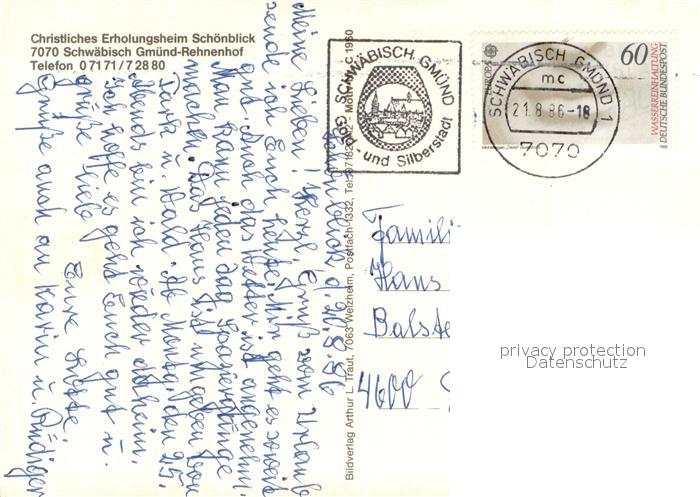 Christliches Erholungsheim Schönblick
7070 Schwäbisch Gmünd-Rehnenhof
Telefon 0 71 71 / 7 28 80
d. 20.8.86
Meine Lieben! Herzl. Grüße vom Urlaub
sende ich Euch heute. Mir geht es soweit
gut. Auch das Wetter ist angenehm.
Man kann jeden Tag Spaziergänge
machen. Das Haus ist umgeben von
Park u. Wald. Ab Montag, den 25.
abends bin ich wieder daheim.
Ich hoffe es geht Euch gut u.
grüße Liebe
Eure
Grüße auch an Karin u. Rüdiger
Bildverlag Arthur L. Traut, 7063 Welzheim, Postfach 1332, Tel. 07182
C 1960
SCHWÄBISCH GMÜND
Gold- und Silberstadt
SCHWÄBISCH GMÜND 1
mc
21.8.86-18
7070
EUROPA
60
WASSERREINHALTUNG
DEUTSCHE BUNDESPOST
Famili
Hans
Balste
4600
privacy protection
Datenschutz